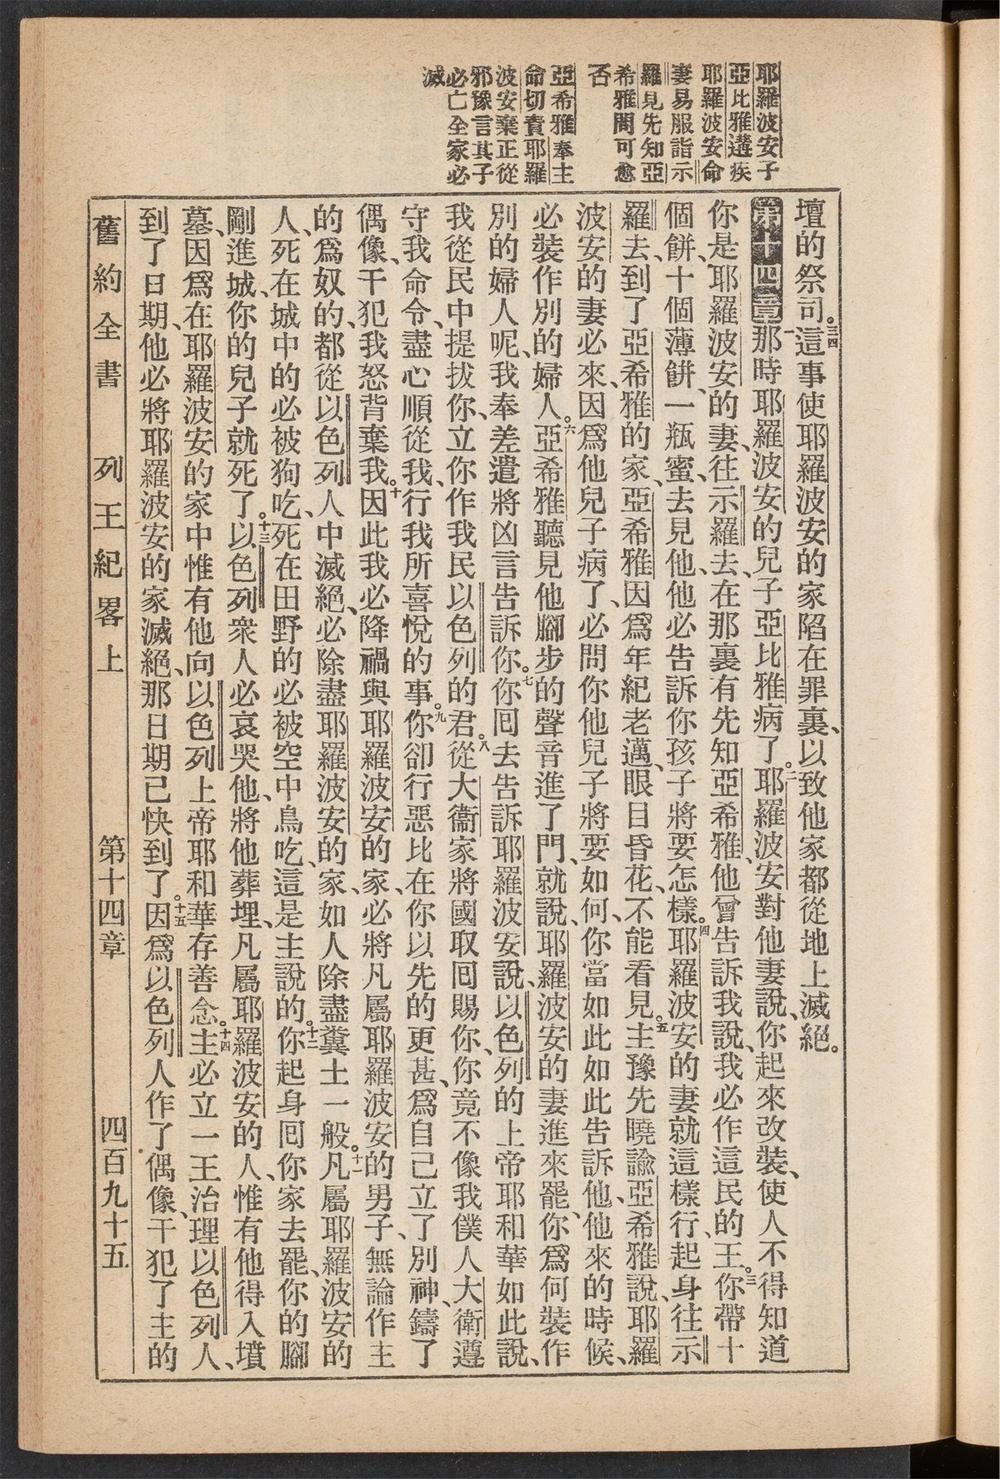 耶羅波安子
亞比雅遘疾
耶羅波安命
妻易服詣示
羅見先知亞
希雅問可愈
否
亞希雅奉主
命切責耶羅
波安棄正從
邪豫言其子
必亡全家必
滅
壇的祭司。三四這事使耶羅波安的家陷在罪裏、以致他家都從地上滅絕。
第十四章一那時耶羅波安的兒子亞比雅病了。二耶羅波安對他妻說、你起來改裝、使人不得知道
你是耶羅波安的妻、往示羅去、在那裏有先知亞希雅、他曾告訴我說、我必作這民的王。三你帶十
個餅、十個薄餅、一瓶蜜、去見他、他必告訴你孩子將要怎樣。四耶羅波安的妻就這樣行、起身往示
羅去、到了亞希雅的家、亞希雅因爲年紀老邁、眼目昏花、不能看見。五主豫先曉諭亞希雅說、耶羅
波安的妻必來、因爲他兒子病了、必問你他兒子將要如何、你當如此如此告訴他、他來的時候、
必裝作別的婦人。六亞希雅聽見他腳步的聲音進了門、就說、耶羅波安的妻進來罷、你爲何裝作
別的婦人呢、我奉差遣將凶言告訴你。七你囘去告訴耶羅波安說、以色列的上帝耶和華如此說、
我從民中提拔你、立你作我民以色列的君。八從大衞家將國取囘賜你、你竟不像我僕人大衞遵
守我命令、盡心順從我、行我所喜悅的事。九你卻行惡比在你以先的更甚、爲自己立了別神、鑄了
偶像、干犯我怒背棄我。十因此我必降禍與耶羅波安的家、必將凡屬耶羅波安的男子、無論作主
的爲奴的、都從以色列人中滅絕、必除盡耶羅波安的家、如人除盡糞土一般。十一凡屬耶羅波安的
人、死在城中的必被狗吃、死在田野的必被空中鳥吃、這是主說的。十二你起身囘你家去罷、你的腳
剛進城、你的兒子就死了。十三以色列衆人必哀哭他、將他葬埋、凡屬耶羅波安的人、惟有他得入墳
墓、因爲在耶羅波安的家中惟有他向以色列上帝耶和華存善念。十四主必立一王治理以色列人、
到了日期、他必將耶羅波安的家滅絕、那日期已快到了。十五因爲以色列人作了偶像、干犯了主的
舊約全書 列王紀畧上 第十四章 四百九十五